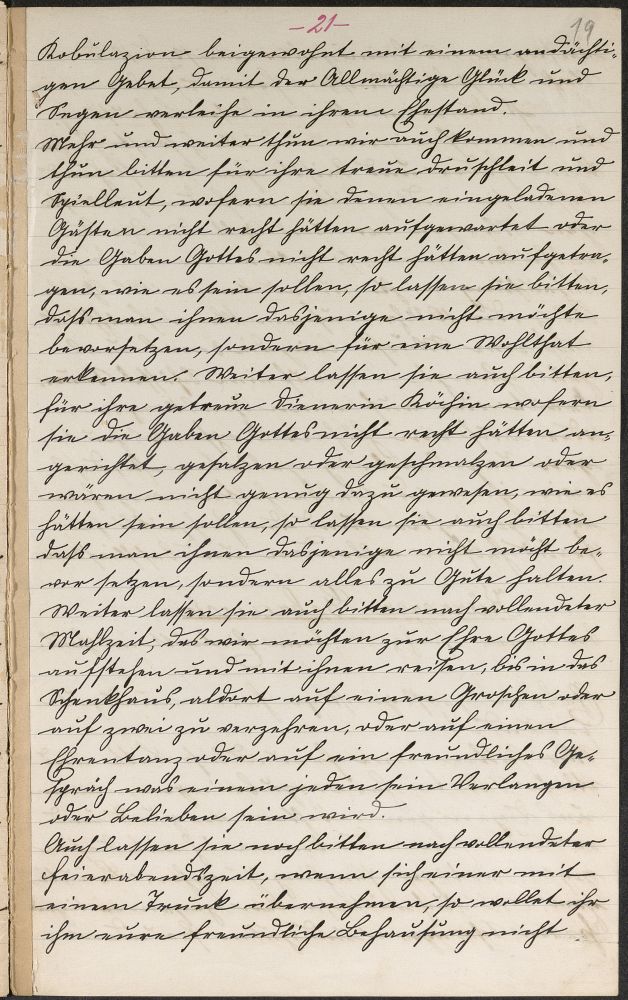 -21-
19
Kobulazion beigewohnt mit einem andächti-
gen Gebet, damit der Allmächtige Glück und
Segen verleihe in ihrem Ehestand.
Mehr und weiter thun wir auch kommen und
thun bitten für ihre treue druschleit und
Spielleut, wofern sie denen eingeladenen
Gästen nicht recht hätten aufgewartet oder
die Gaben Gottes nicht recht hätten aufgetra-
gen, wie es sein sollen, so lassen sie bitten,
dass man ihnen dasjenige nicht möchte
bevorsetzen, sondern für eine Wohlthat
erkennen. Weiter lassen sie auch bitten,
für ihre getreue Dienerin Köchin wofern
sie die Gaben Gottes nicht recht hätten an-
gerichtet, gesalzen oder geschmalzen oder
wären nicht genug dazu gewesen, wie es
hätten sein sollen, so lassen sie auch bitten
dass man ihnen dasjenige nicht möcht be-
vor setzen, sondern alles zu Gute halten.
Weiter lassen sie auch bitten nach vollendeter
Mahlzeit, das wir möchten zur Ehre Gottes
aufstehen und mit ihnen reisen, bis in das
Schenkhaus, aldort auf einen Groschen oder
auf zwei zu verzehren, oder auf einen
Ehrentanz oder auf ein freundliches Ge-
spräch was einem jeden sein Verlangen
oder Belieben sein wird.
Auch lassen sie noch bitten nach vollendeter
feierabendszeit, wenn sich einer mit
einem Trunk übernehmen, so wollet ihr
ihm eure freundliche Behausung nicht